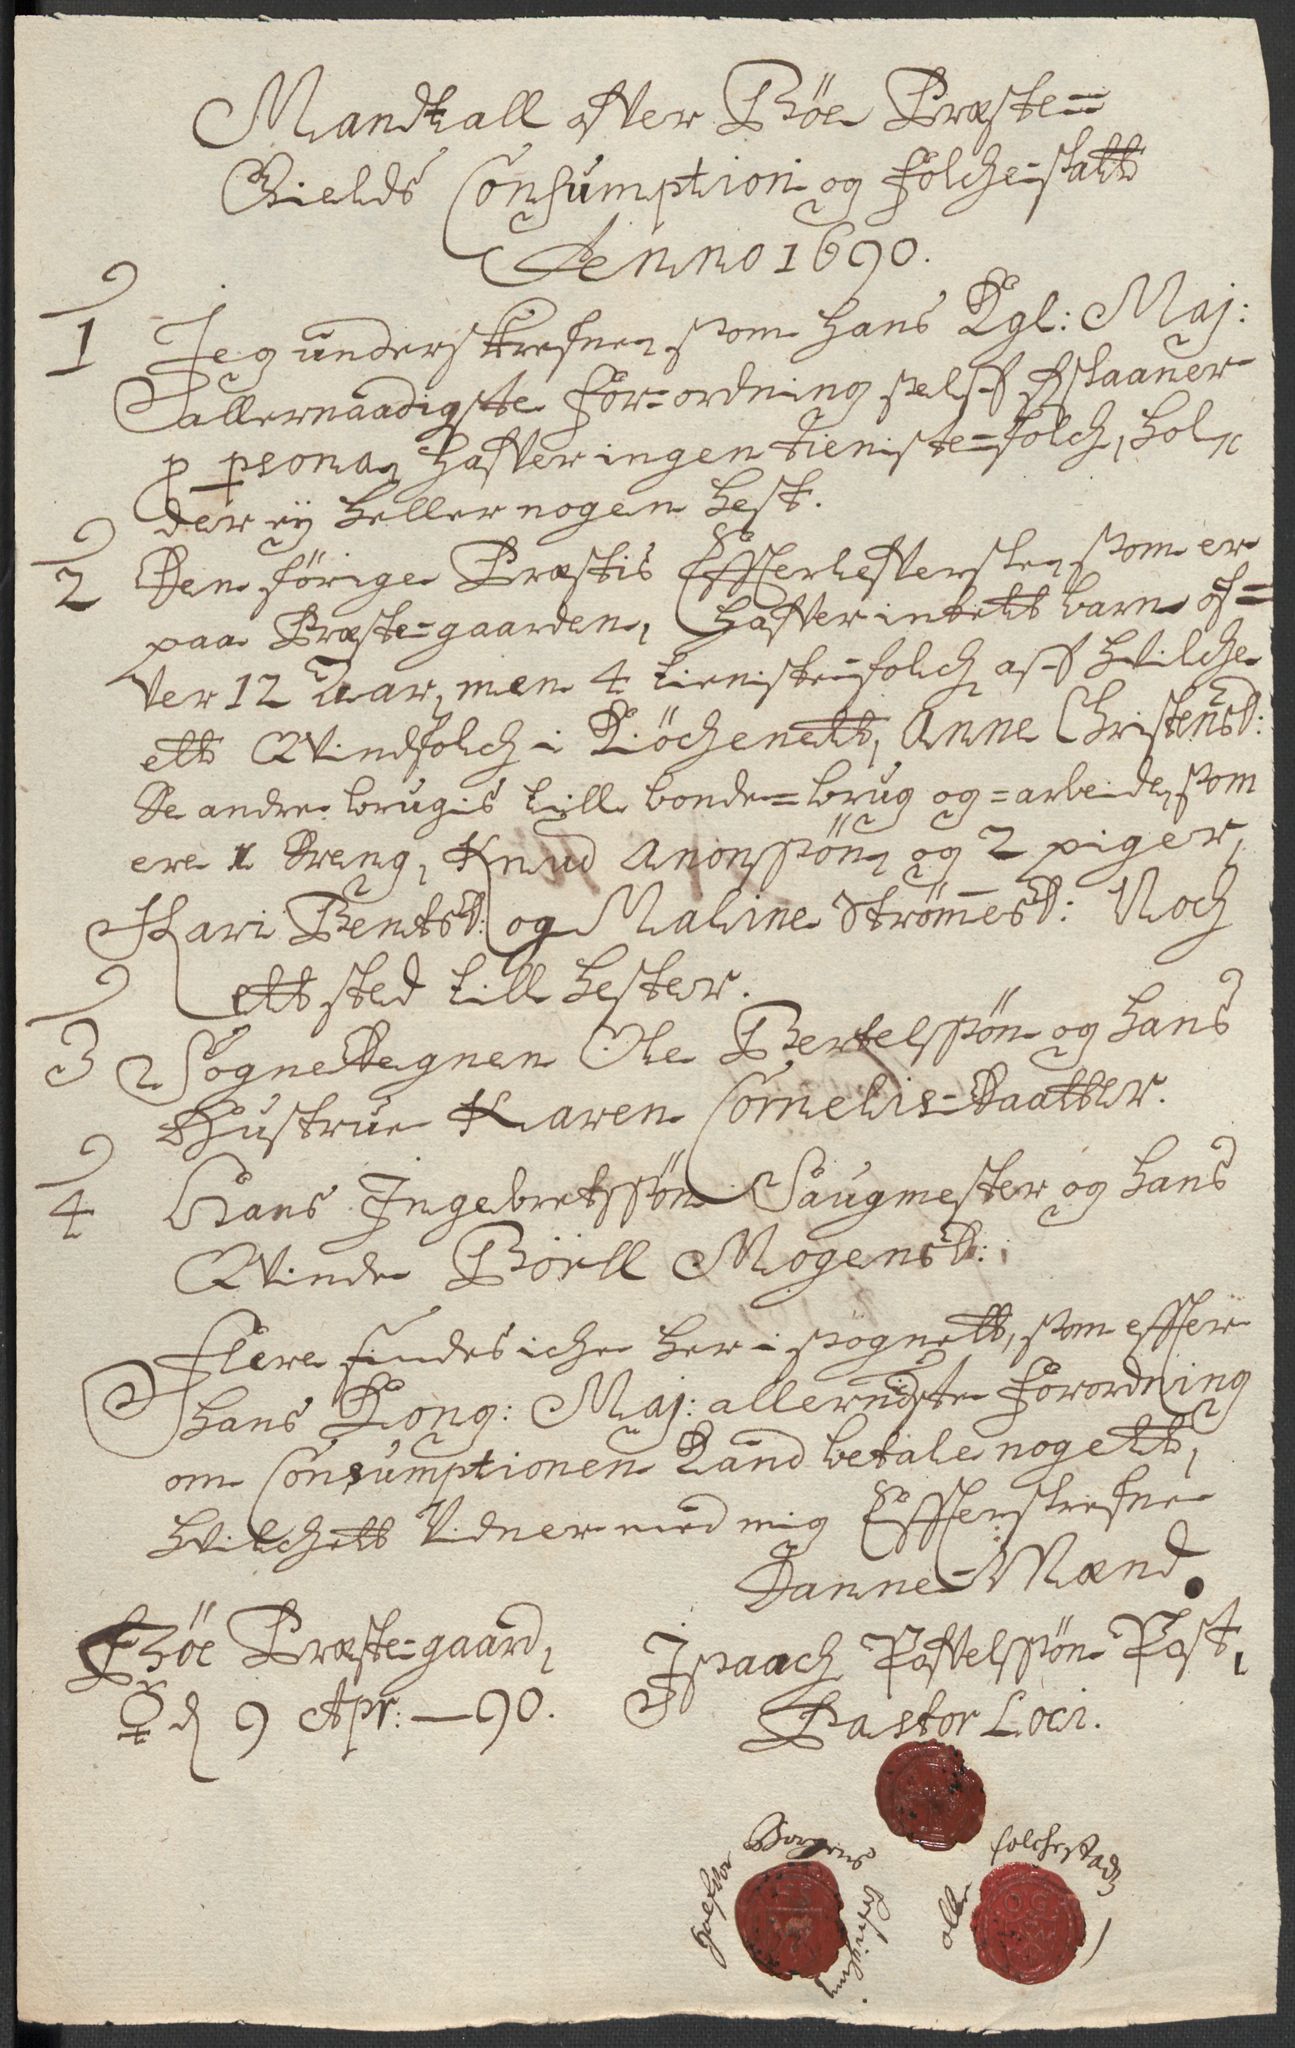 Mandtall ofver Böe Præste=
Gields Consumption og folche-skatt
Anno 1690.
1 Jeg underskrefne, som hans Kgl: Maj:
allernaadigste for=ordning self forskaaner
p psona, hafver ingen tieniste=folch, hol,,
der ey heller nogen hest.
2 Den förige Præstis Effterlefverske, som er
paa Præste=gaarden, hafver intett barn of=
ver 12 Aar, men 4 tieniste=folch, aff hvilche
ett Qvindfolch i Kiöchenett, Anne Christensd:
De andre brugis till bonde=brug og =arbeide, som
ere 1 dreng, Knud Anonssön, og 2 piger,
Kari Bentsd: og Maline Strömmesd: Noch
ett sted till hester.
3 Sogne Degnen Ole Bertelssön og hans
Hustrue Karen Cornelis=daatter.
4 Hans Ingebretssön Saugmester og hans
Qvinde Böell Mogensd:
Flere findes iche her i sognett, som effter
hans Kong: Maj: allerndste forordning
om Consumptionen kand betale nogett,
hvilchett vidner med mig Effterskrefne
Danne=Mænd.
Böe Præste=gaard,
☿ d 9 Apr: —90.
Isaach Pofvelssön Post,
Pastor Loci.
folchestad
olle